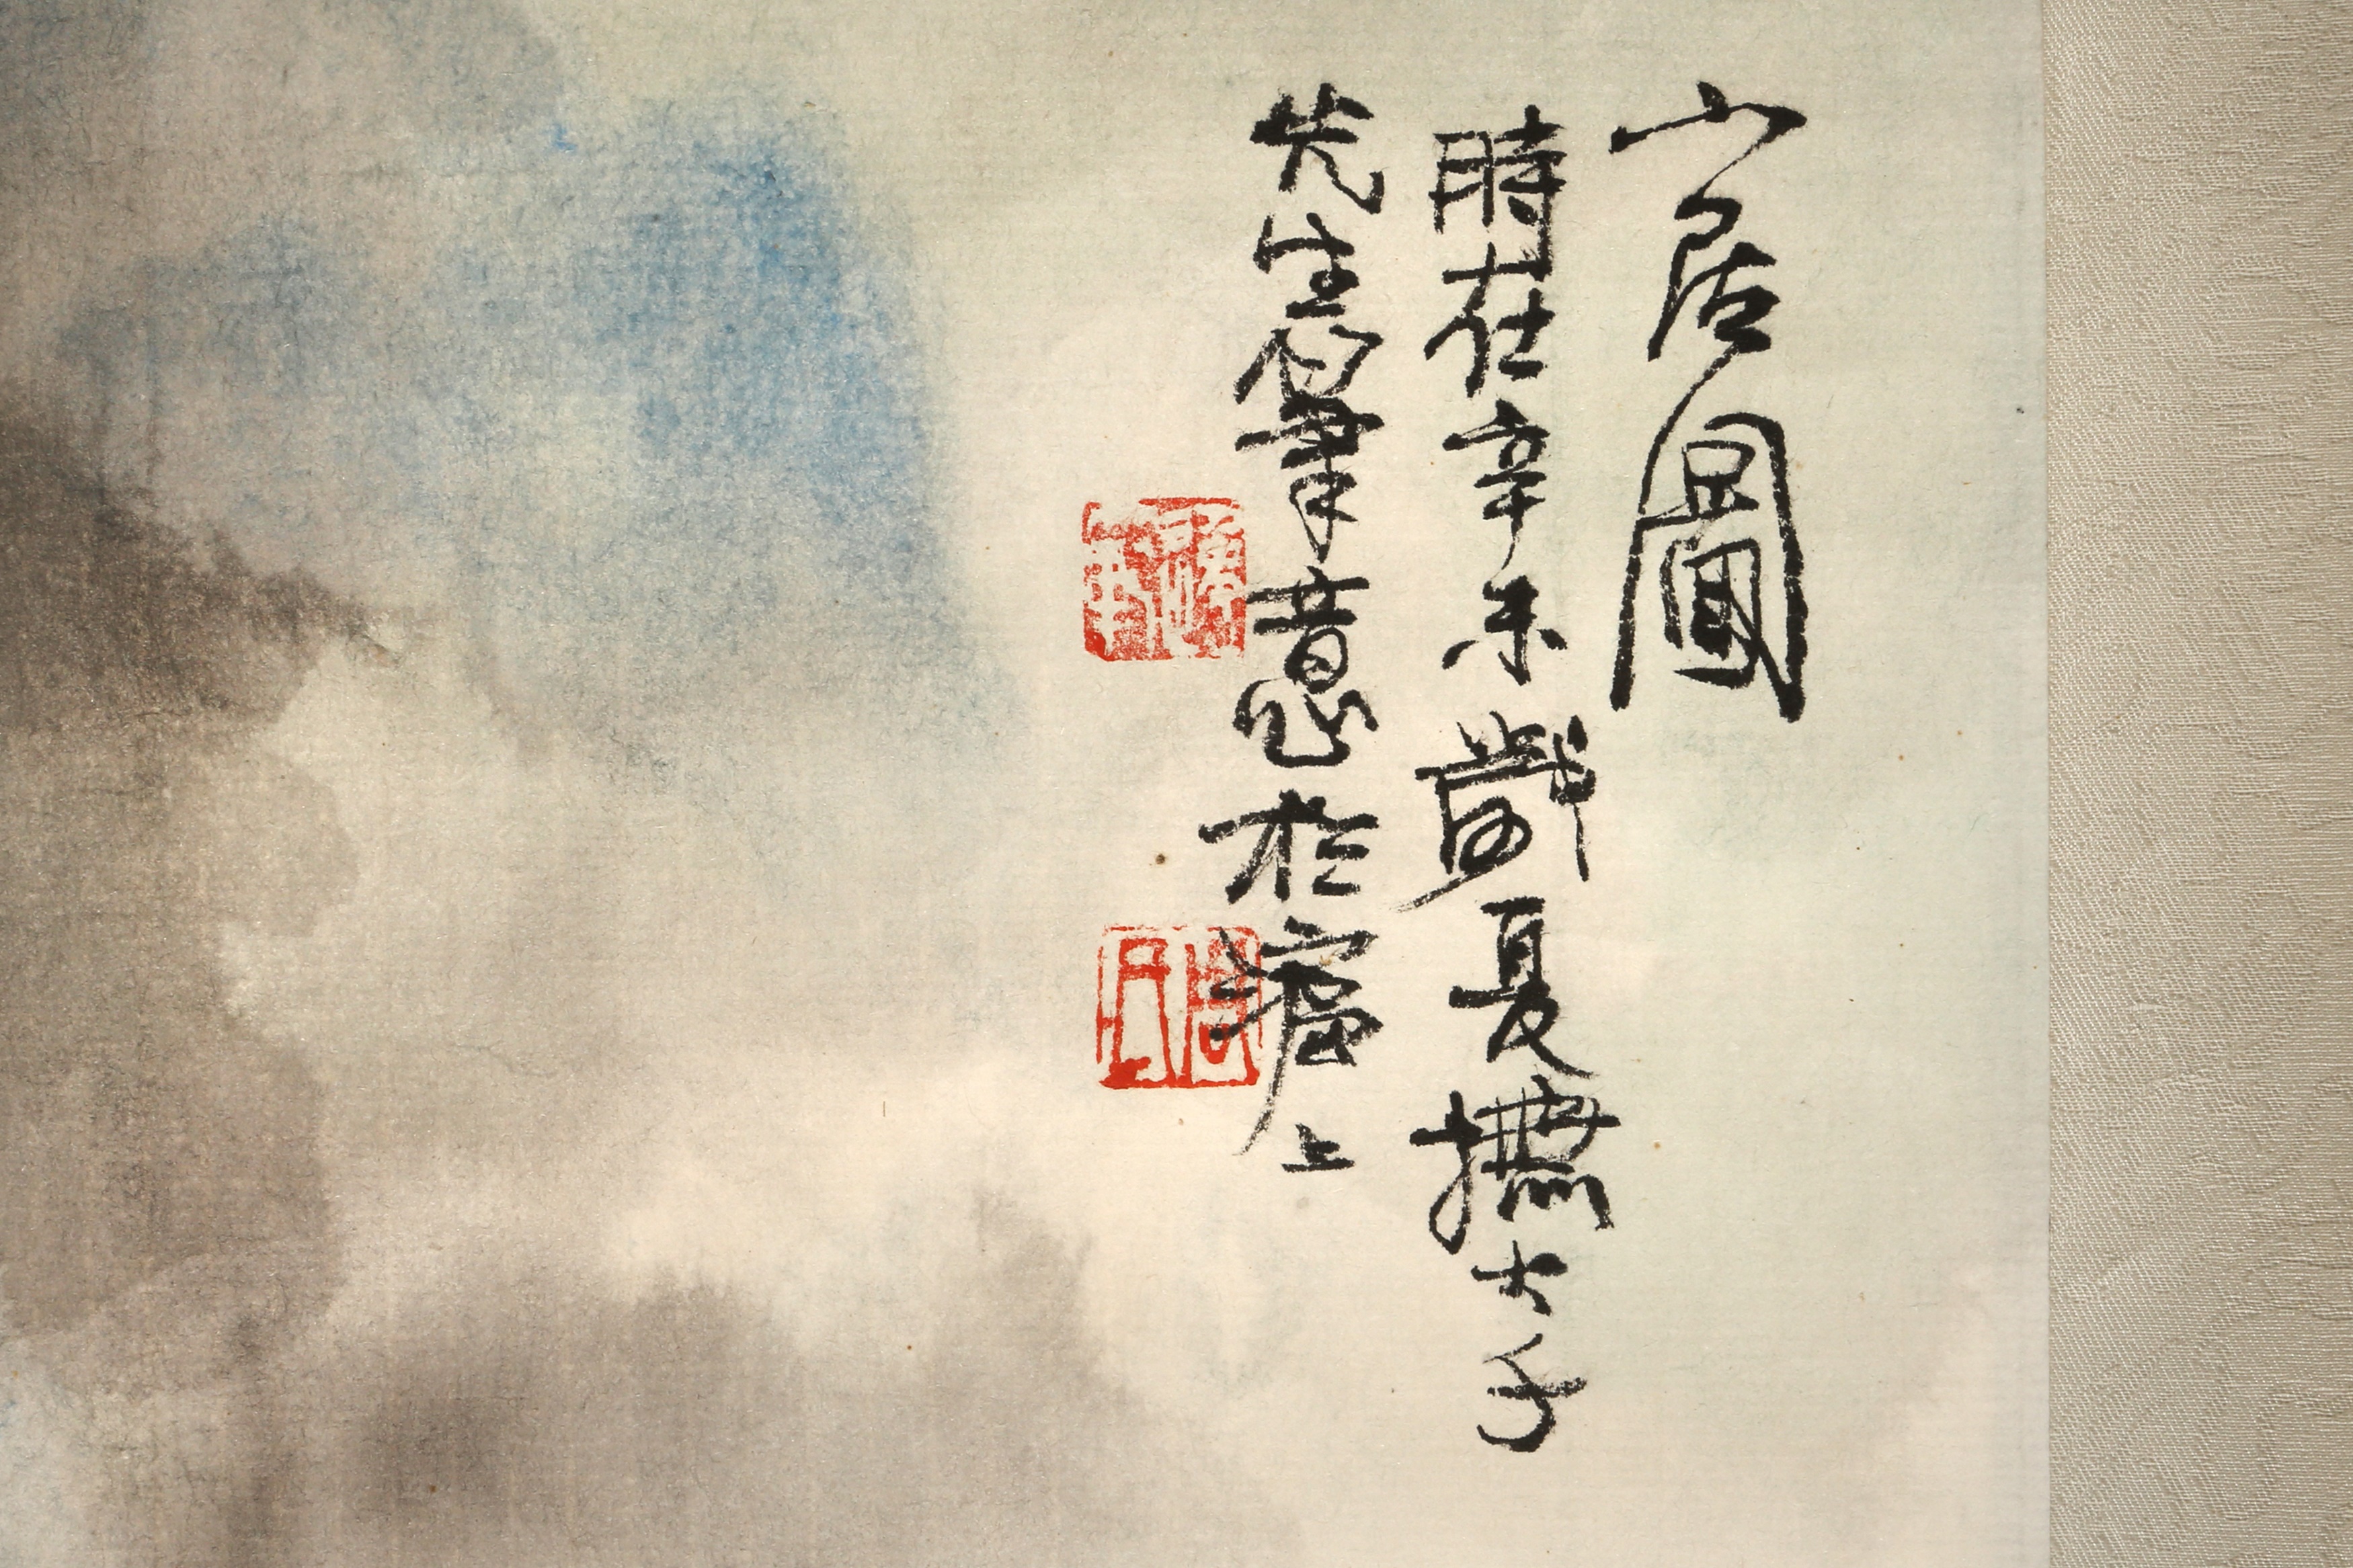 山居圖
時在辛未歲夏撫大千
先生筆意於滬上